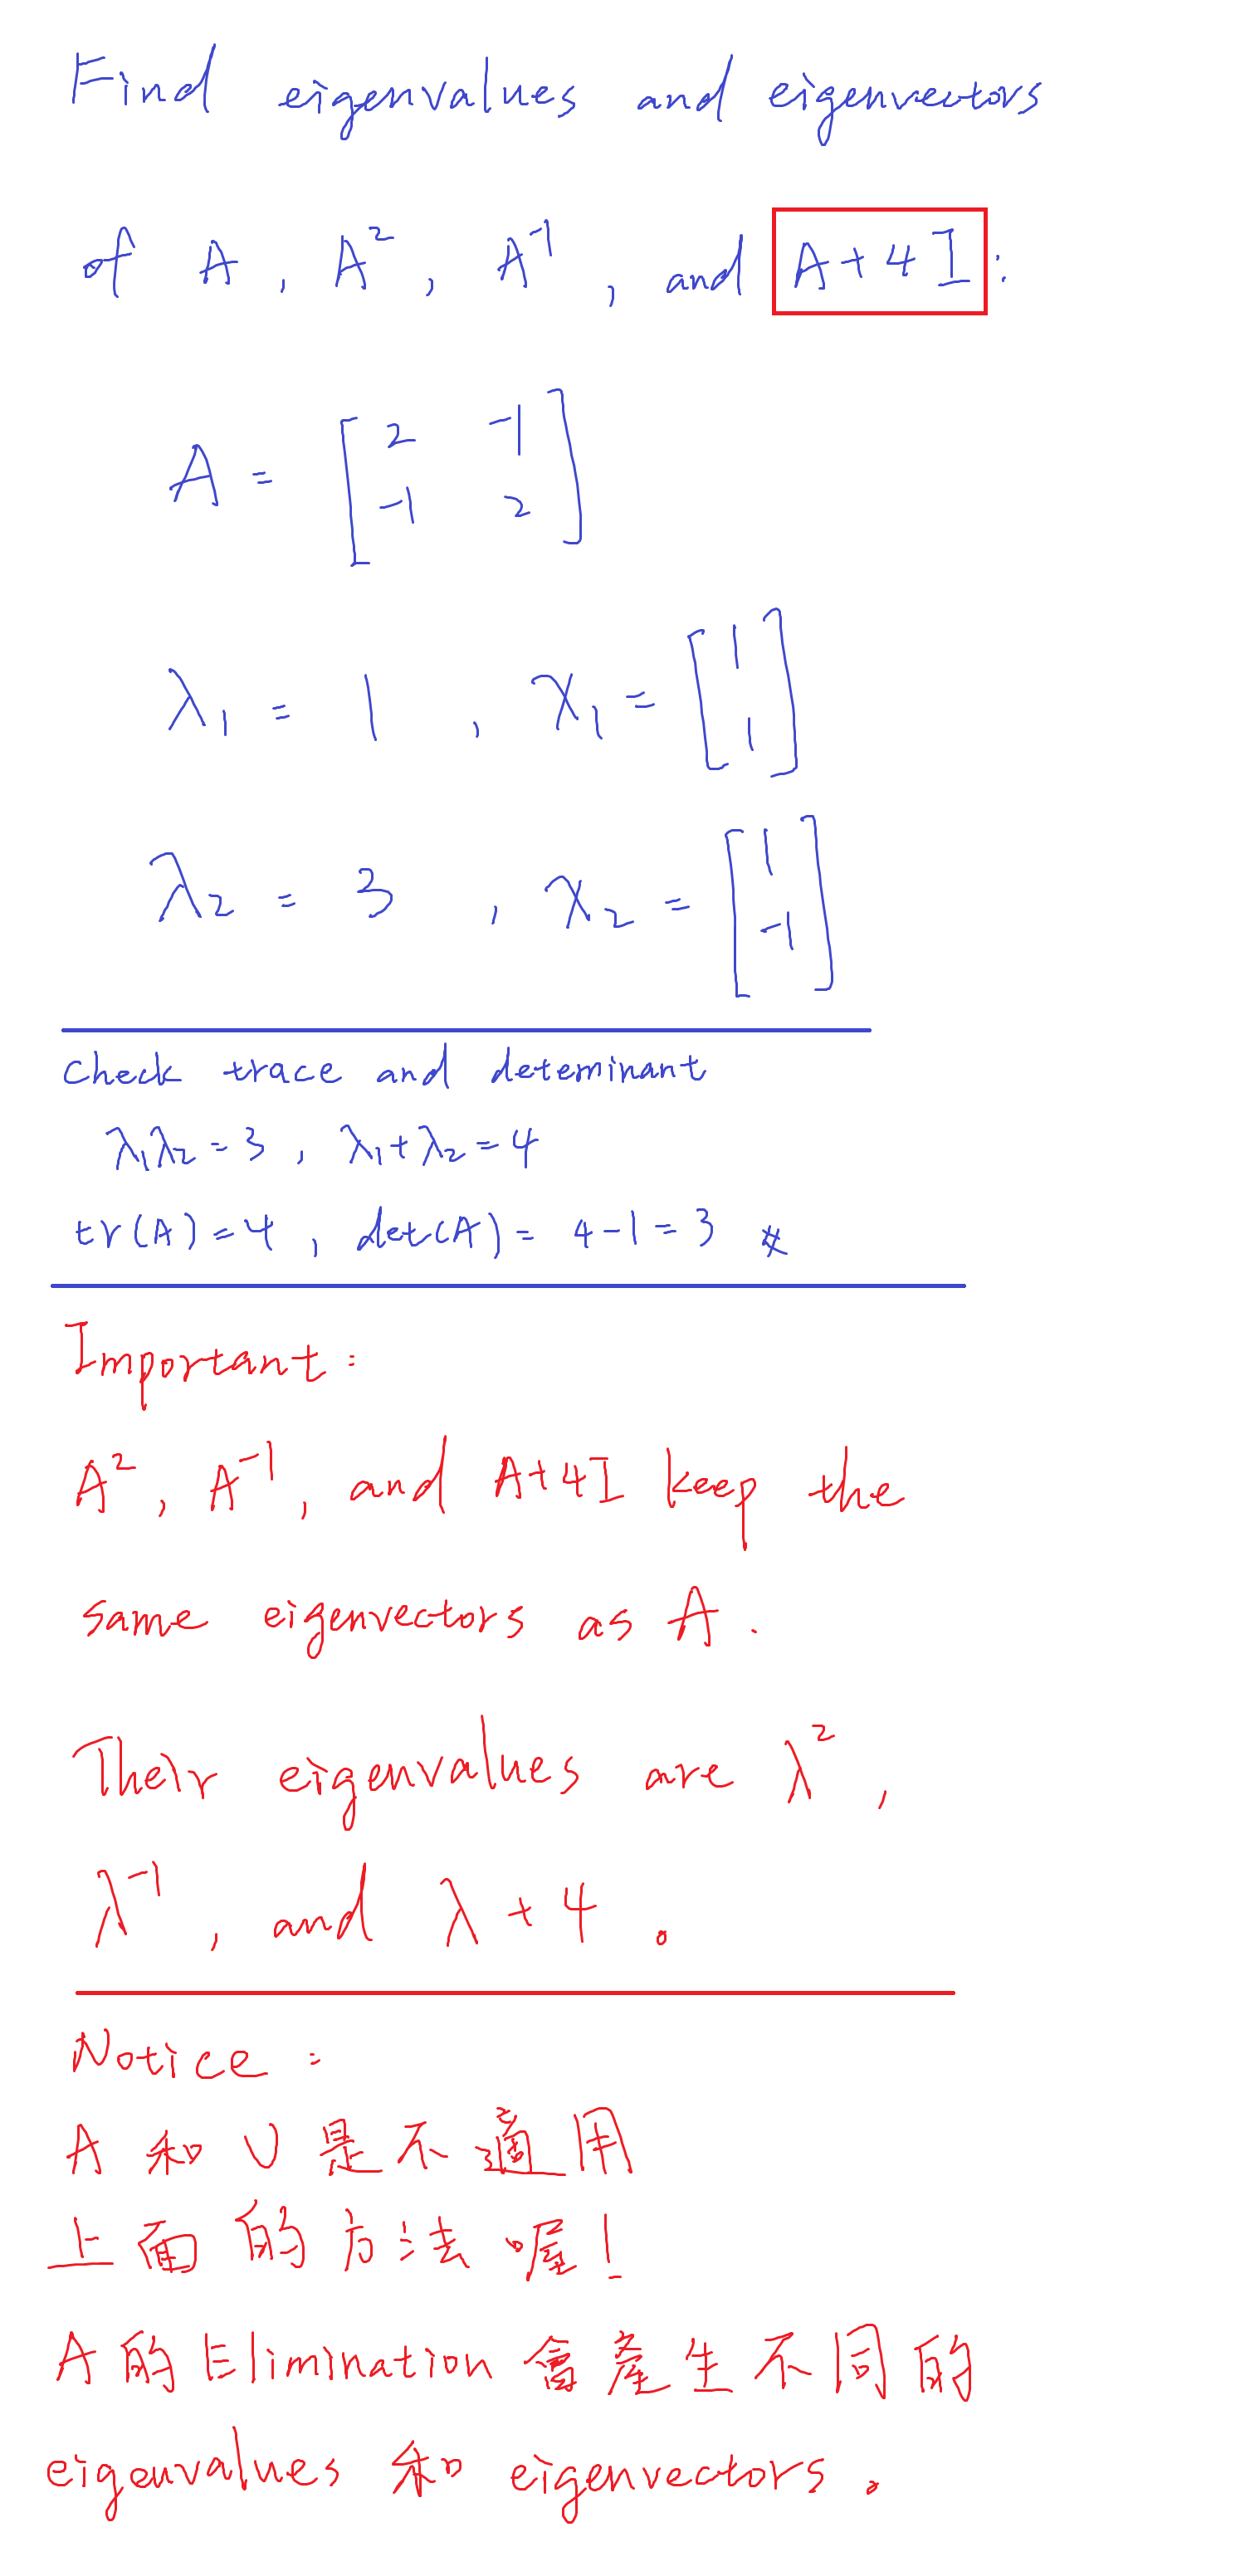 Find eigenvalues and eigenvectors
of A, A², A⁻¹, and A+4I:
A = [2 -1
-1 2]
λ₁ = 1, x₁ = [1
1]
λ₂ = 3, x₂ = [1
-1]
check trace and deteminant
λ₁λ₂=3, λ₁+λ₂=4
tr(A)=4, det(A)= 4-1=3 #
Important:
A², A⁻¹, and A+4I keep the
same eigenvectors as A.
Their eigenvalues are λ²,
λ⁻¹, and λ+4。
Notice:
A 和 U 是不適用
上面的方法喔!
A 的 Elimination 會產生不同的
eigenvalues 和 eigenvectors。